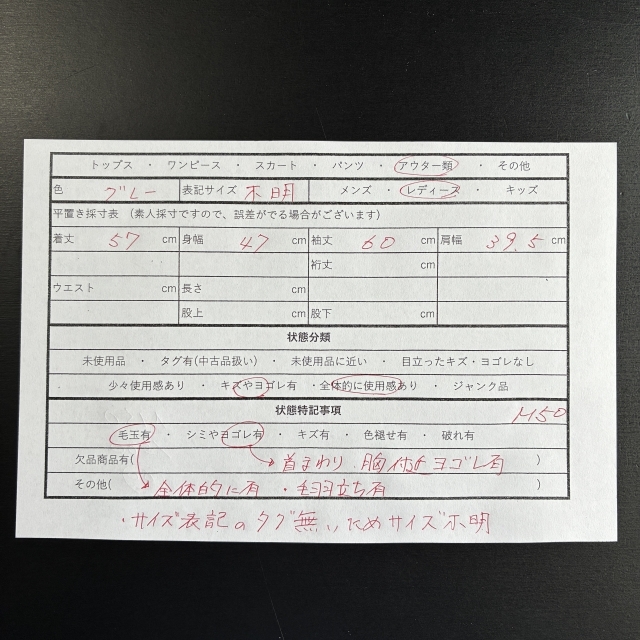 トップス ・ ワンピース ・ スカート ・ パンツ ・ アウター類 ・ その他
色 グレー 表記サイズ 不明 メンズ ・ レディース ・ キッズ
平置き採寸表 (素人採寸ですので、誤差がでる場合がございます)
着丈 57 cm 身幅 47 cm 袖丈 60 cm 肩幅 39.5 cm
裄丈 cm
ウエスト cm 長さ cm
股上 cm 股下 cm
状態分類
未使用品 ・ タグ有(中古品扱い) ・ 未使用品に近い ・ 目立ったキズ・ヨゴレなし
少々使用感あり ・ キズやヨゴレ有 ・全体的に使用感あり ・ ジャンク品
状態特記事項 M50
毛玉有 ・ シミやヨゴレ有 ・ キズ有 ・ 色褪せ有 ・ 破れ有
欠品商品有( 首まわり、胸付近ヨゴレ有 )
その他( 全体的に有 ・毛羽立ち有 )
・サイズ表記のタグ無いためサイズ不明